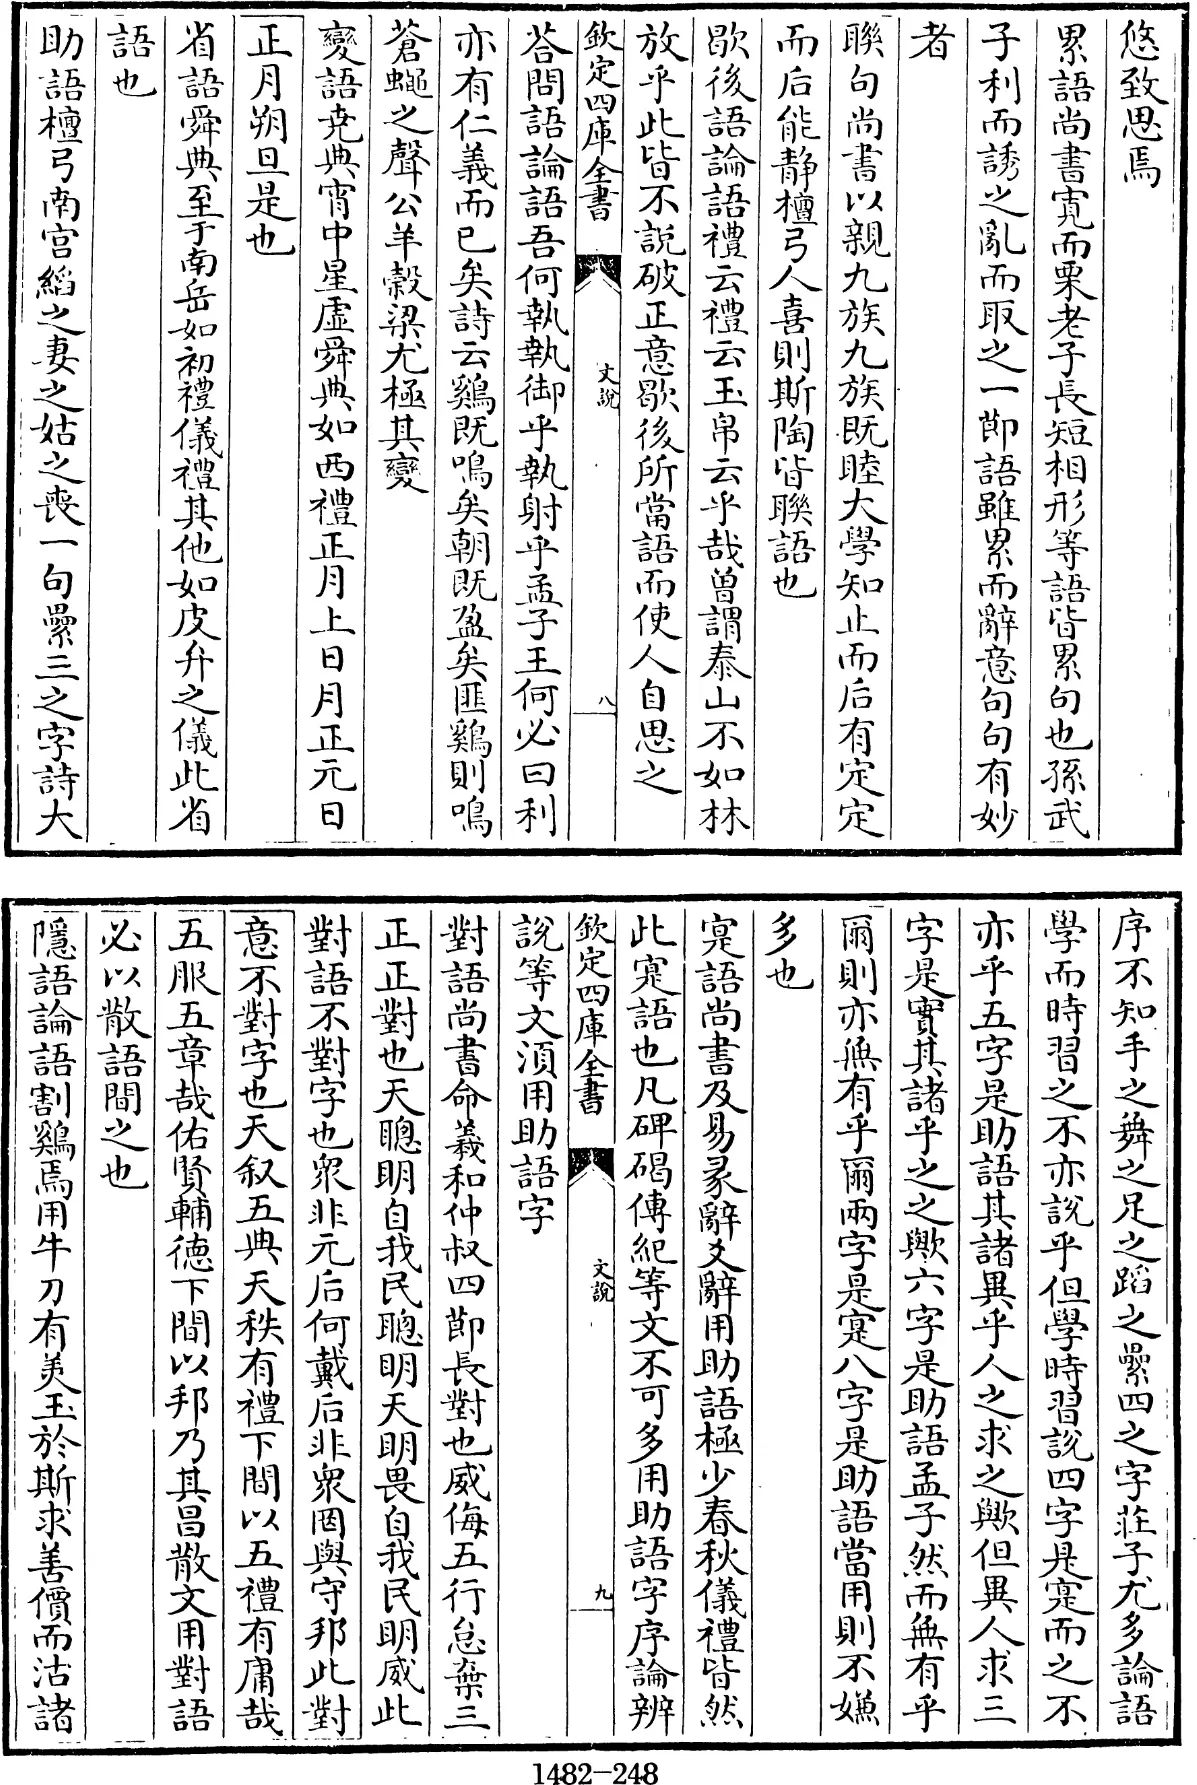 悠致思焉
累語尚書寛而栗老子長短相形等語皆累句也孫武
子利而誘之亂而取之一節語雖累而辭意句句有妙
者
聨句尚書以親九族九族既睦大學知止而后有定定
而后能静檀弓人喜則斯陶皆聨語也
歇後語論語禮云禮云玉帛云乎哉曽謂泰山不如林
放乎此皆不説破正意歇後所當語而使人自思之
欽定四庫全書
文說
八
荅問語論語吾何執執御乎執射乎孟子王何必曰利
亦有仁義而已矣詩云鷄既鳴矣朝既盈矣匪鷄則鳴
蒼蠅之聲公羊穀梁尤極其變
變語堯典宵中星虚舜典如西禮正月上日月正元日
正月朔旦是也
省語舜典至于南岳如初禮儀禮其他如皮弁之儀此省
語也
助語檀弓南宫縚之妻之姑之喪一句纍三之字詩大
序不知手之舞之足之蹈之纍四之字莊子尤多論語
學而時習之不亦説乎但學時習説四字是寔而之不
亦乎五字是助語其諸異乎人之求之歟但異人求三
字是實其諸乎之之歟六字是助語孟子然而無有乎
爾則亦無有乎爾兩字是寔八字是助語當用則不嫌
多也
寔語尚書及易彖辭爻辭用助語極少春秋儀禮皆然
此寔語也凡碑碣傳紀等文不可多用助語字序論辨
欽定四庫全書
文說
九
說等文湏用助語字
對語尚書命羲和仲叔四節長對也威侮五行怠棄三
正正對也天聰明自我民聰明天明畏自我民明威此
對語不對字也衆非元后何戴后非衆罔與守邦此對
意不對字也天叙五典天秩有禮下間以五禮有庸哉
五服五章哉佑賢輔德下間以邦乃其昌散文用對語
必以散語間之也
隱語論語割鷄焉用牛刀有美玉於斯求善價而沽諸
1482-248